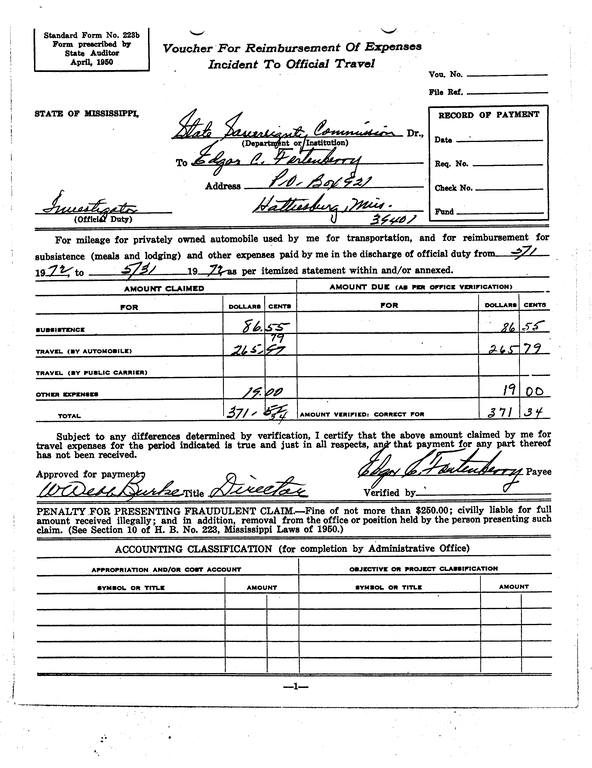 Standard Form No. 223b
Form prescribed by
State Auditor
April, 1950
Voucher For Reimbursement Of Expenses
Incident To Official Travel
Vou. No.
File Ref.
STATE OF MISSISSIPPI,
State Sovereignty Commission Dr.,
(Department or Institution)
To Edgar C. Fortenberry
Address P.O. Box 921
Investigator
(Official Duty)
Hattiesburg, Mis.
39401
RECORD OF PAYMENT
Date
Req. No.
Check No.
Fund
For mileage for privately owned automobile used by me for transportation, and for reimbursement for
subsistence (meals and lodging) and other expenses paid by me in the discharge of official duty from 5/1
1972, to 5/31 1972 as per itemized statement within and/or annexed.
AMOUNT CLAIMED AMOUNT DUE (AS PER OFFICE VERIFICATION)
FOR DOLLARS CENTS FOR DOLLARS CENTS
SUBSISTENCE 86.55 86 55
79
TRAVEL (BY AUTOMOBILE) 265.97 265 79
TRAVEL (BY PUBLIC CARRIER)
OTHER EXPENSES 19.00 19 00
TOTAL 371. AMOUNT VERIFIED: CORRECT FOR 371 34
Subject to any differences determined by verification, I certify that the above amount claimed by me for
travel expenses for the period indicated is true and just in all respects, and that payment for any part thereof
has not been received.
Edgar C Fortenberry Payee
Approved for payment
W Webb Burke Title Director Verified by
PENALTY FOR PRESENTING FRAUDULENT CLAIM.—Fine of not more than $250.00; civilly liable for full
amount received illegally; and in addition, removal from the office or position held by the person presenting such
claim. (See Section 10 of H. B. No. 223, Mississippi Laws of 1950.)
ACCOUNTING CLASSIFICATION (for completion by Administrative Office)
APPROPRIATION AND/OR COST ACCOUNT OBJECTIVE OR PROJECT CLASSIFICATION
SYMBOL OR TITLE AMOUNT SYMBOL OR TITLE AMOUNT
—1—